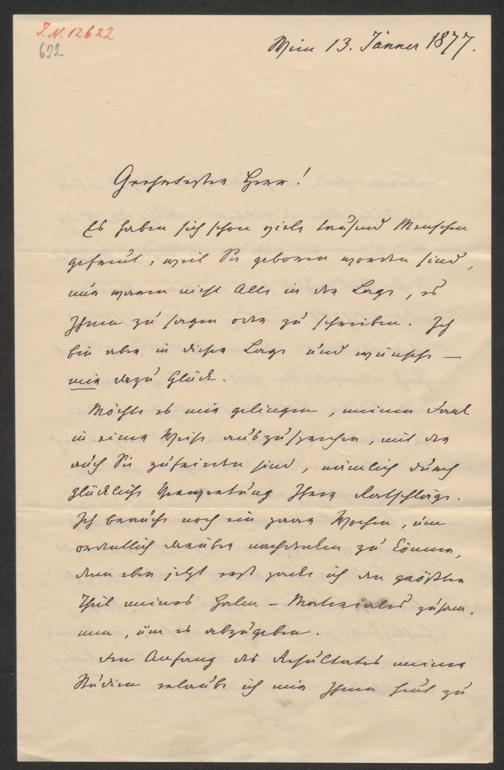 I.N. 12622
622
Wien 13. Jänner 1877.
Geehrtester Herr!
Es haben sich schon viele tausend Menschen
gefreut, weil Sie geboren worden sind,
nur waren nicht Alle in der Lage, es
Ihnen zu sagen oder zu schreiben. Ich
bin aber in dieser Lage und wünsche —
mir dazu Glück.
Möchte es mir gelingen, meinen Dank
in einer Weise auszusprechen, mit der
auch Sie zufrieden sind, nämlich durch
glückliche Ihrer Rathschläge.
Ich brauche noch ein paar Wochen, um
ordentlich darüber nachdenken zu können,
denn eben jetzt erst packe ich den größten
Theil meines Materiales zusam-
men, um es abzugeben.
Den Anfang des Resultates meiner
Studien erlaube ich mir Ihnen heut zu